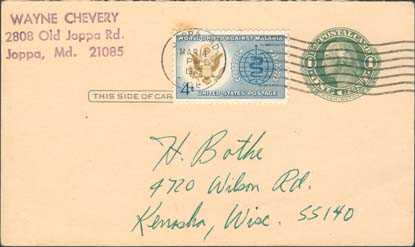 WAYNE CHEVERY
2808 Old Joppa Rd.
Joppa, Md. 21085
WORLD UNITED AGAINST MALARIA
4¢
UNITED STATES POSTAGE
U.S. POSTAL CARD
1 1
ONE CENT
THIS SIDE OF CAR
H. Bothe
4720 Wilson Rd.
Kenosha, Wisc. 55140